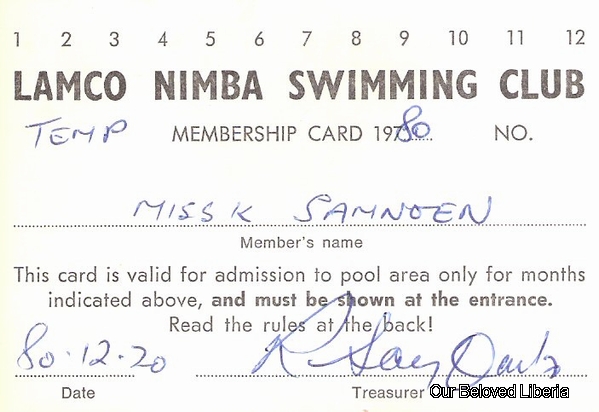 1 2 3 4 5 6 7 8 9 10 11 12
LAMCO NIMBA SWIMMING CLUB
TEMP MEMBERSHIP CARD 1980 NO.
MISS K SAMNOEN
Member's name
This card is valid for admission to pool area only for months
indicated above, and must be shown at the entrance.
Read the rules at the back!
80.12.20
Date Treasurer
Our Beloved Liberia